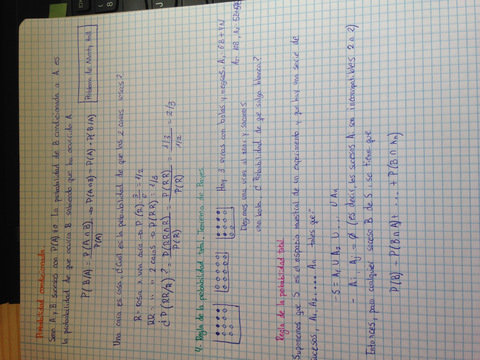 Probabilidad condicionada
Sean A y B sucesos con P(A)>0. La probabilidad de B condicionada a A es
la probabilidad de que ocurra B sabiendo que ha ocurrido A
P(B/A) = P(A∩B) / P(A) → P(A∩B) = P(A) · P(B/A)
Problema de Monty Hall
Una cara es rosa. ¿Cuál es la probabilidad de que las 2 caras rosas?
R = rosa = 1/2
RR 2 caras = P(RR) = 1/3
¿P(RR/R)? = P(RR∩R) / P(R) = P(RR) / P(R) = 1/3 / 1/2 = 2/3
4. Regla de la probabilidad total. Teorema de Bayes
Hay 3 urnas con bolas y negras: A₁: 6B + 4N
Elegimos una urna al azar y sacamos
una bola. ¿Probabilidad de que salga blanca?
Regla de la probabilidad total
Supongamos que S es el espacio muestral de un experimento y que hay una serie de
sucesos, A₁, A₂, ... An tales que:
S = A₁ ∪ A₂ ∪ ... ∪ An
- Ai ∩ Aj = ∅ (es decir, los sucesos Ai son incompatibles 2 a 2)
Entonces, para cualquier suceso B de S, se tiene que
P(B) = P(B∩A₁) + ... + P(B∩An)